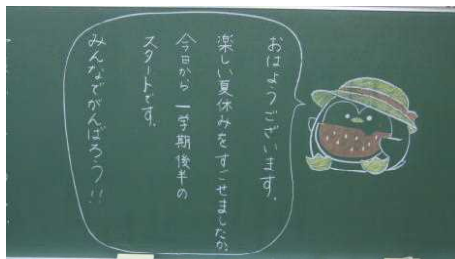 おはようございます。
楽しい夏休みをすごせましたか。
今日から 一学期後半の
スタートです。
みんなでがんばろう!!